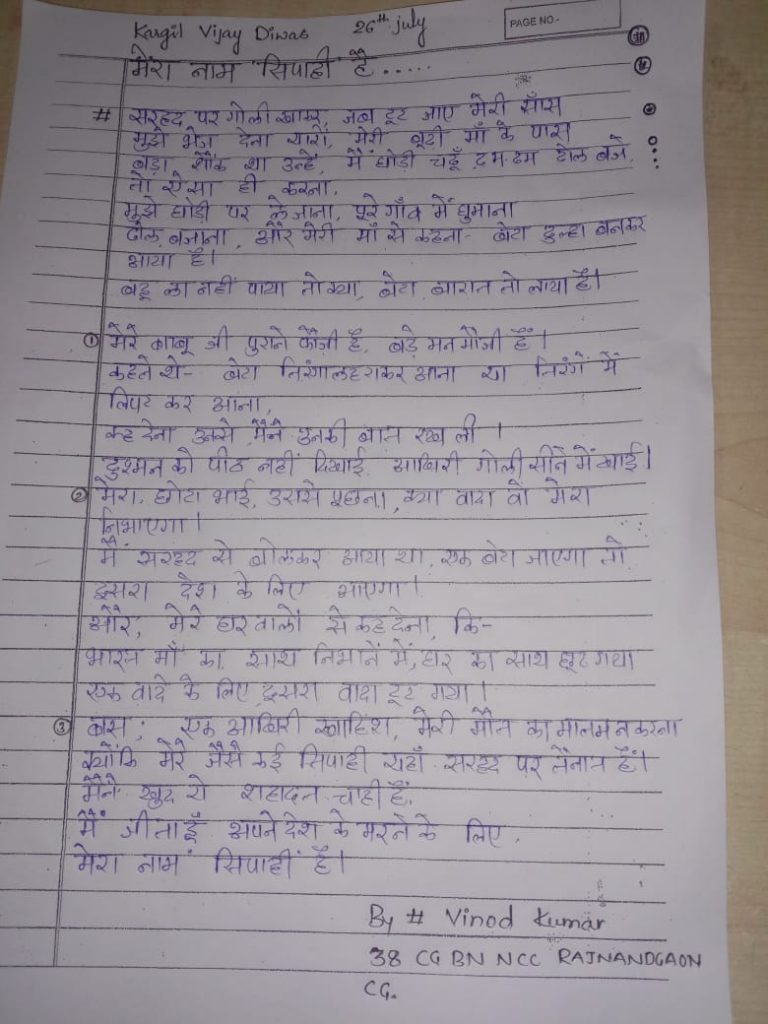 Kargil Vijay Diwas 26th july
PAGE NO.-
मेरा नाम सिपाही है.....
# सरहद पर गोली खाकर, जब टूट जाए मेरी साँस
मुझे भेज देना यारों, मेरी बूढ़ी माँ के पास
बड़ा शौक था उन्हें, मैं घोड़ी चढूँ ढम-ढम ढोल बजे,
तो ऐसा ही करना,
मुझे घोड़ी पर ले जाना, पूरे गाँव में घुमाना
ढोल बजाना, और मेरी माँ से कहना- बेटा दुल्हा बनकर
आया है।
बहू ला नहीं पाया तो क्या, बेटा बारात तो लाया है।
① मेरे बाबू जी पुराने फौजी है, बड़े मन मौजी हैं।
कहते थे- बेटा तिरंगा लहराकर आना या तिरंगें में
लिपट कर आना,
कह देना उनसे मैंने उनकी बात रख ली।
दुश्मन को पीठ नहीं दिखाई, आखिरी गोली सीने में खाई।
② मेरा छोटा भाई, उससे पूछना, क्या वादा वो मेरा
निभाएगा।
मैं सरहद से बोलकर आया था, एक बेटा जाएगा तो
दूसरा देश के लिए आएगा।
और, मेरे घर वालों से कह देना, कि-
भारत माँ का साथ निभाने में, घर का साथ छूट गया
एक वादे के लिए दूसरा वादा टूट गया।
③ बस, एक आखिरी ख्वाहिश, मेरी मौत का मातम न करना
क्योंकि मेरे जैसे कई सिपाही यहाँ सरहद पर तैनात हैं।
मैंने खुद से शहादत चाही है,
मैं जीता हूँ अपने देश के मरने के लिए,
मेरा नाम सिपाही है।
By # Vinod Kumar
38 CG BN NCC RAJNANDGAON
CG.